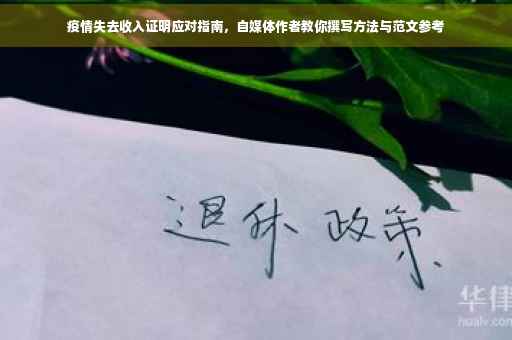 疫情失去收入证明应对指南，自媒体作者教你撰写方法与范文参考
退休 政策
华律
hualv.com